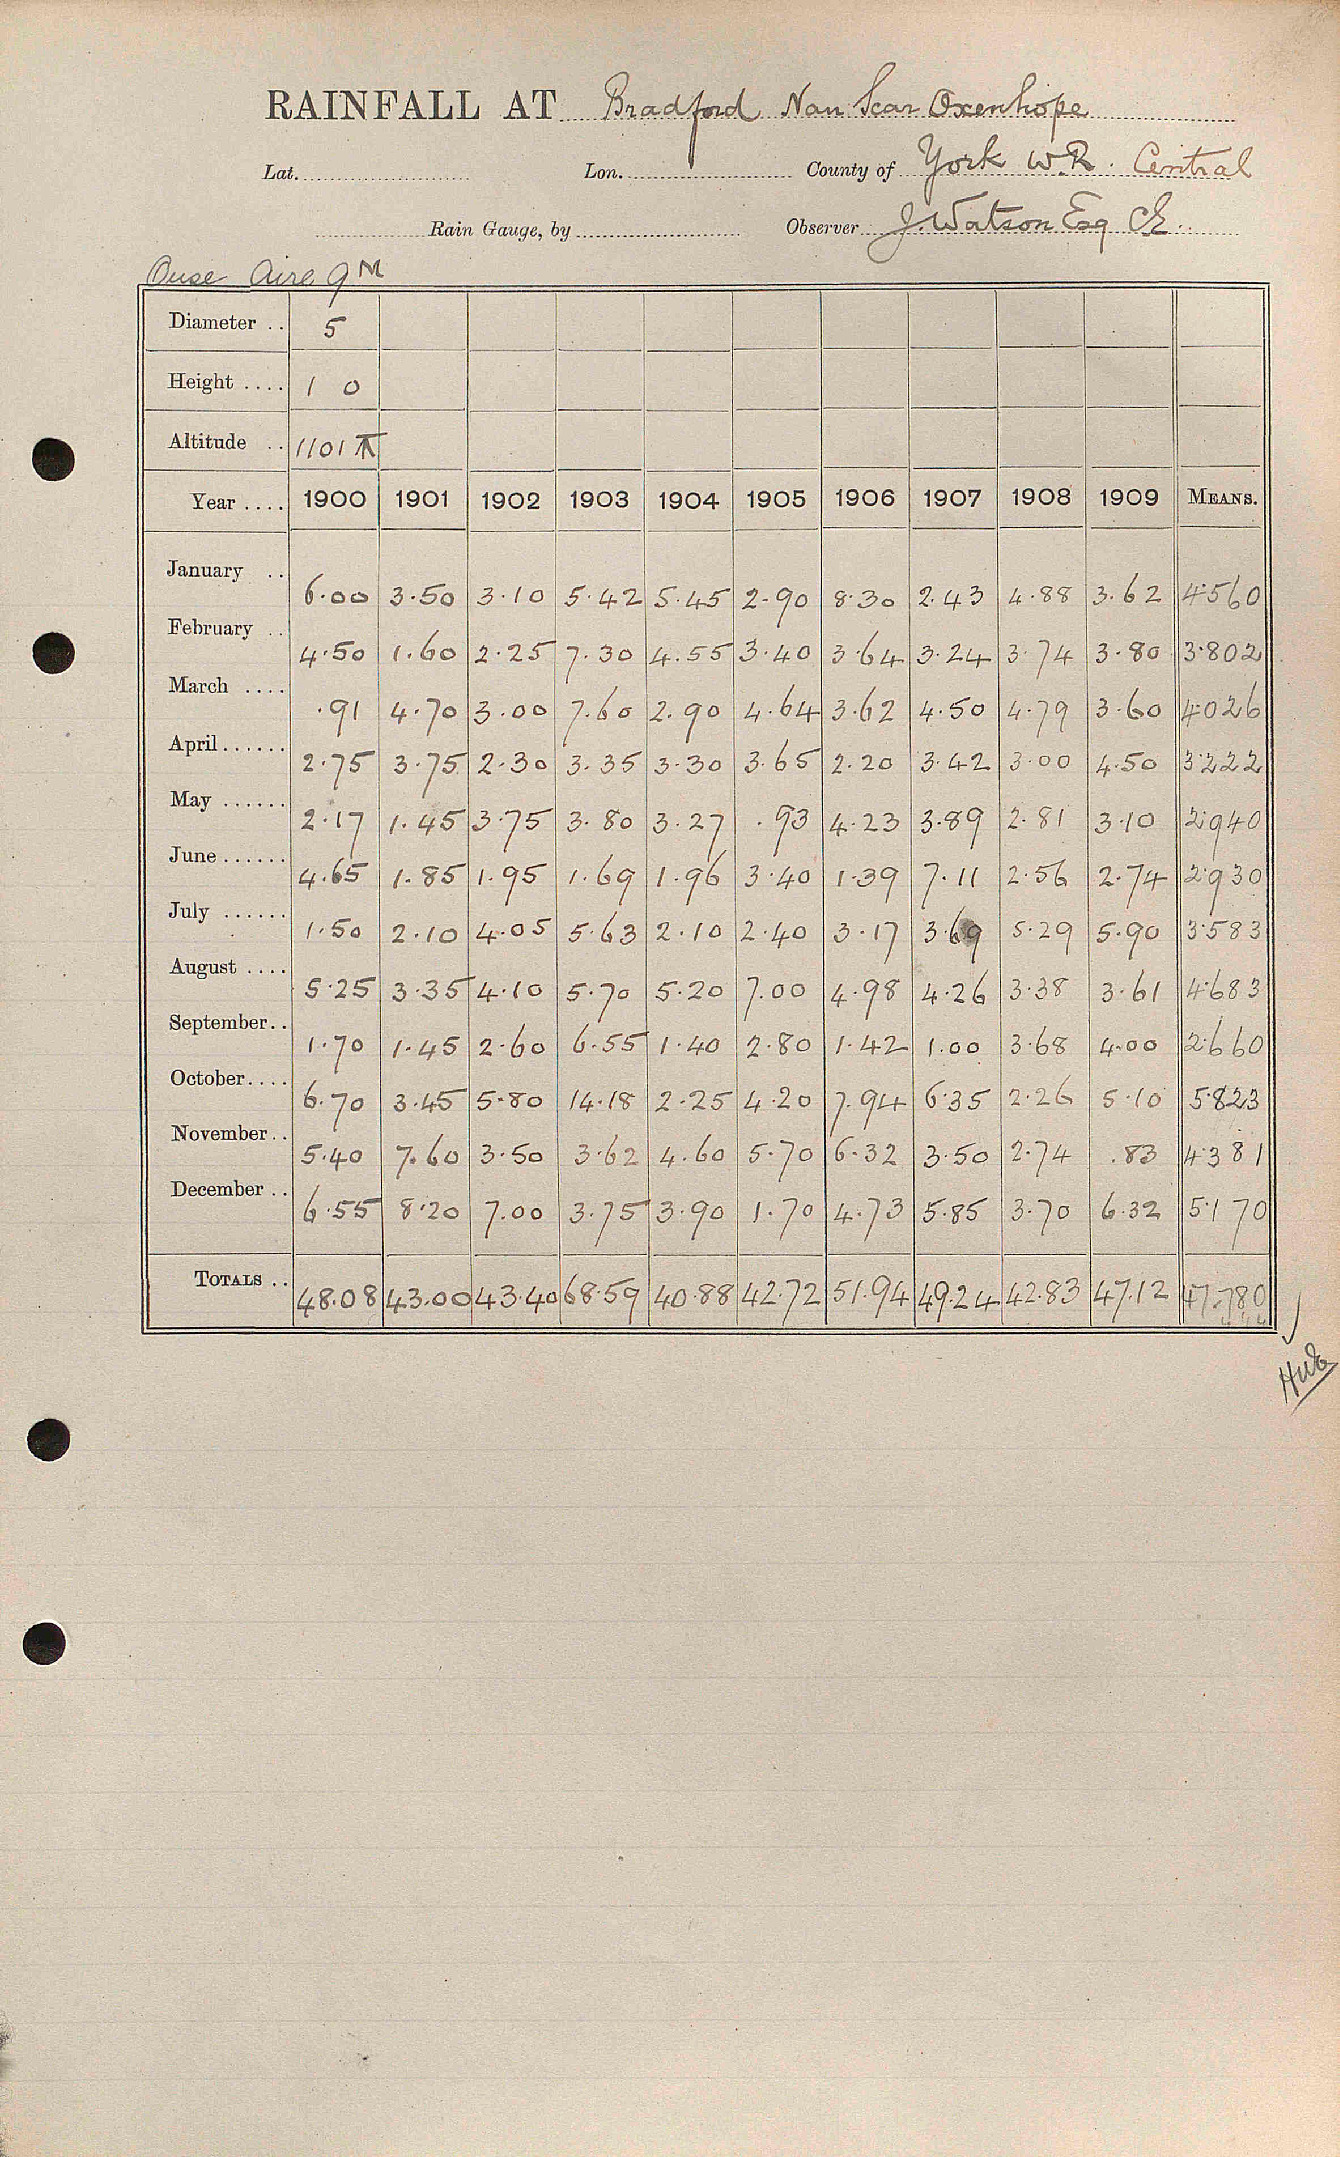 RAINFALL AT Bradford Nan Scar Oxenhope
Lat. Lon. County of York W.R. Central
Rain Gauge, by Observer J. Watson Esq CE
Ouse Aire 9M
Diameter .. 5
Height .... 1 0
Altitude .. 1101
Year .... 1900 1901 1902 1903 1904 1905 1906 1907 1908 1909 MEANS.
January .. 6.00 3.50 3.10 5.42 5.45 2.90 8.30 2.43 4.88 3.62 4.560
February .. 4.50 1.60 2.25 7.30 4.55 3.40 3.64 3.24 3.74 3.80 3.802
March .... .91 4.70 3.00 7.60 2.90 4.64 3.62 4.50 4.79 3.60 4.026
April ...... 2.75 3.75 2.30 3.35 3.30 3.65 2.20 3.42 3.00 4.50 3.222
May ...... 2.17 1.45 3.75 3.80 3.27 .93 4.23 3.89 2.81 3.10 2.940
June ...... 4.65 1.85 1.95 1.69 1.96 3.40 1.39 7.11 2.56 2.74 2.930
July ...... 1.50 2.10 4.05 5.63 2.10 2.40 3.17 3.69 5.29 5.90 3.583
August .... 5.25 3.35 4.10 5.70 5.20 7.00 4.98 4.26 3.38 3.61 4.683
September .. 1.70 1.45 2.60 6.55 1.40 2.80 1.42 1.00 3.68 4.00 2.660
October .... 6.70 3.45 5.80 14.18 2.25 4.20 7.94 6.35 2.26 5.10 5.823
November .. 5.40 7.60 3.50 3.62 4.60 5.70 6.32 3.50 2.74 .83 4.381
December .. 6.55 8.20 7.00 3.75 3.90 1.70 4.73 5.85 3.70 6.32 5.170
TOTALS .. 48.08 43.00 43.40 68.59 40.88 42.72 51.94 49.24 42.83 47.12 47.780